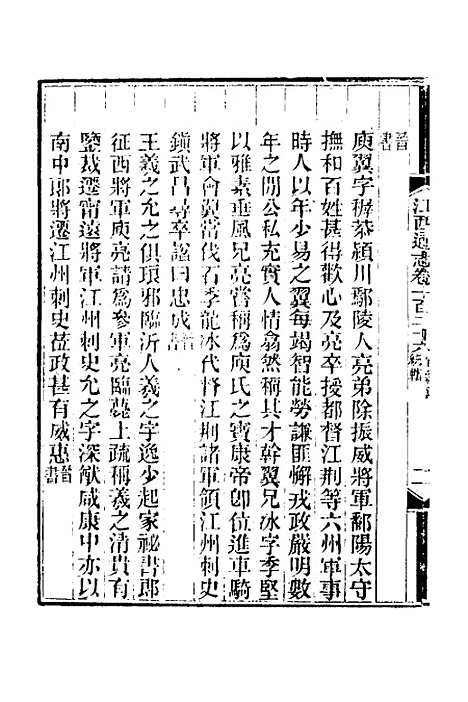 晉書
庾翼字稺恭潁川鄢陵人亮弟除振威將軍鄱陽太守
撫和百姓甚得歡心及亮卒授都督江荆等六州軍事
時人以年少易之翼每竭智能勞謙匪懈戎政嚴明數
年之閒公私充實人情翕然稱其才幹翼兄冰字季堅
以雅素垂風兄亮嘗稱爲庾氏之寶康帝卽位進車騎
將軍會翼當伐石季龍冰代督江荆諸軍領江州刺史
鎭武昌尋卒諡曰忠成晉書
王羲之允之俱琅邪臨沂人羲之字逸少起家祕書郎
征西將軍庾亮請爲參軍亮臨薨上疏稱羲之清貴有
鑒裁遷甯遠將軍江州刺史允之字深猷咸康中亦以
南中郎將遷江州刺史莅政甚有威惠晉書
江西通志卷一百二十六